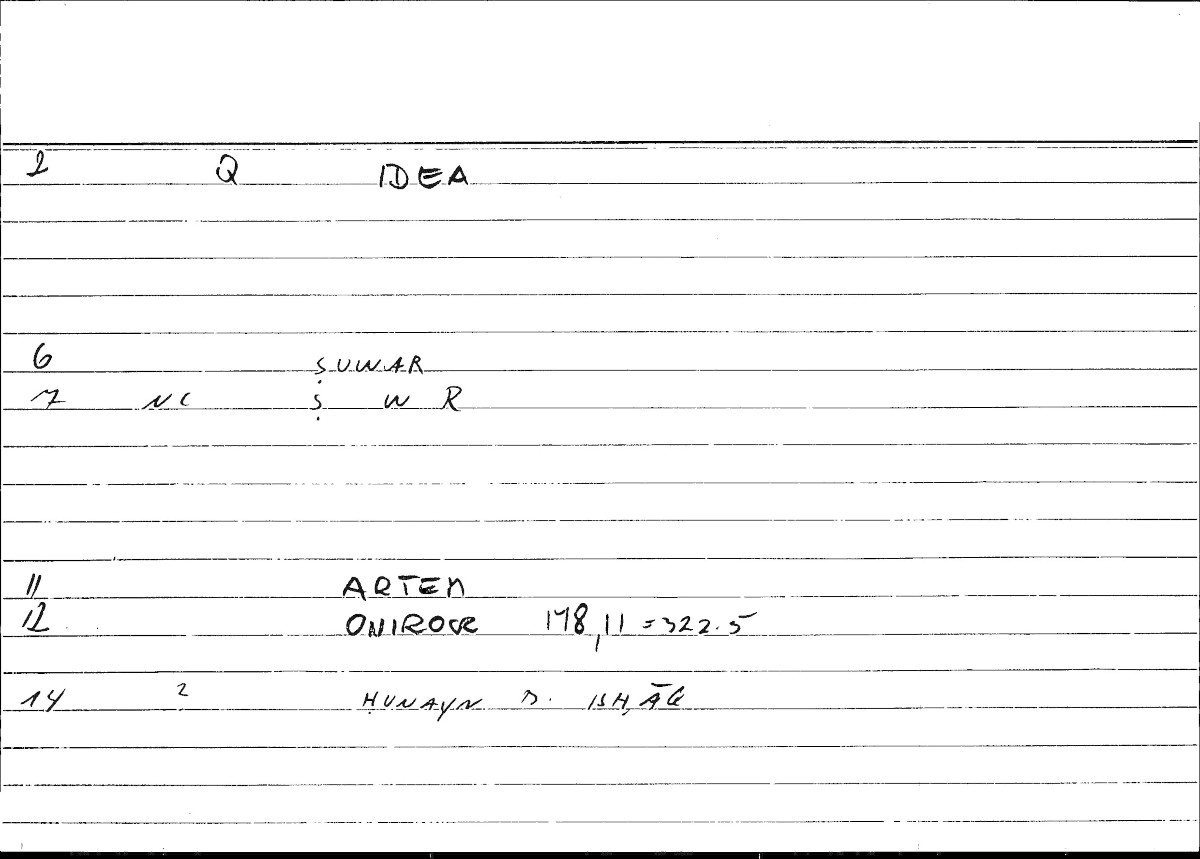 2 Q IDEA
6 ṢUWAR
7 NC Ṣ W R
11 ARTEM
12 ONIROCR 178,11 = 322.5
14 2 ḤUNAYN B. ISḤĀQ